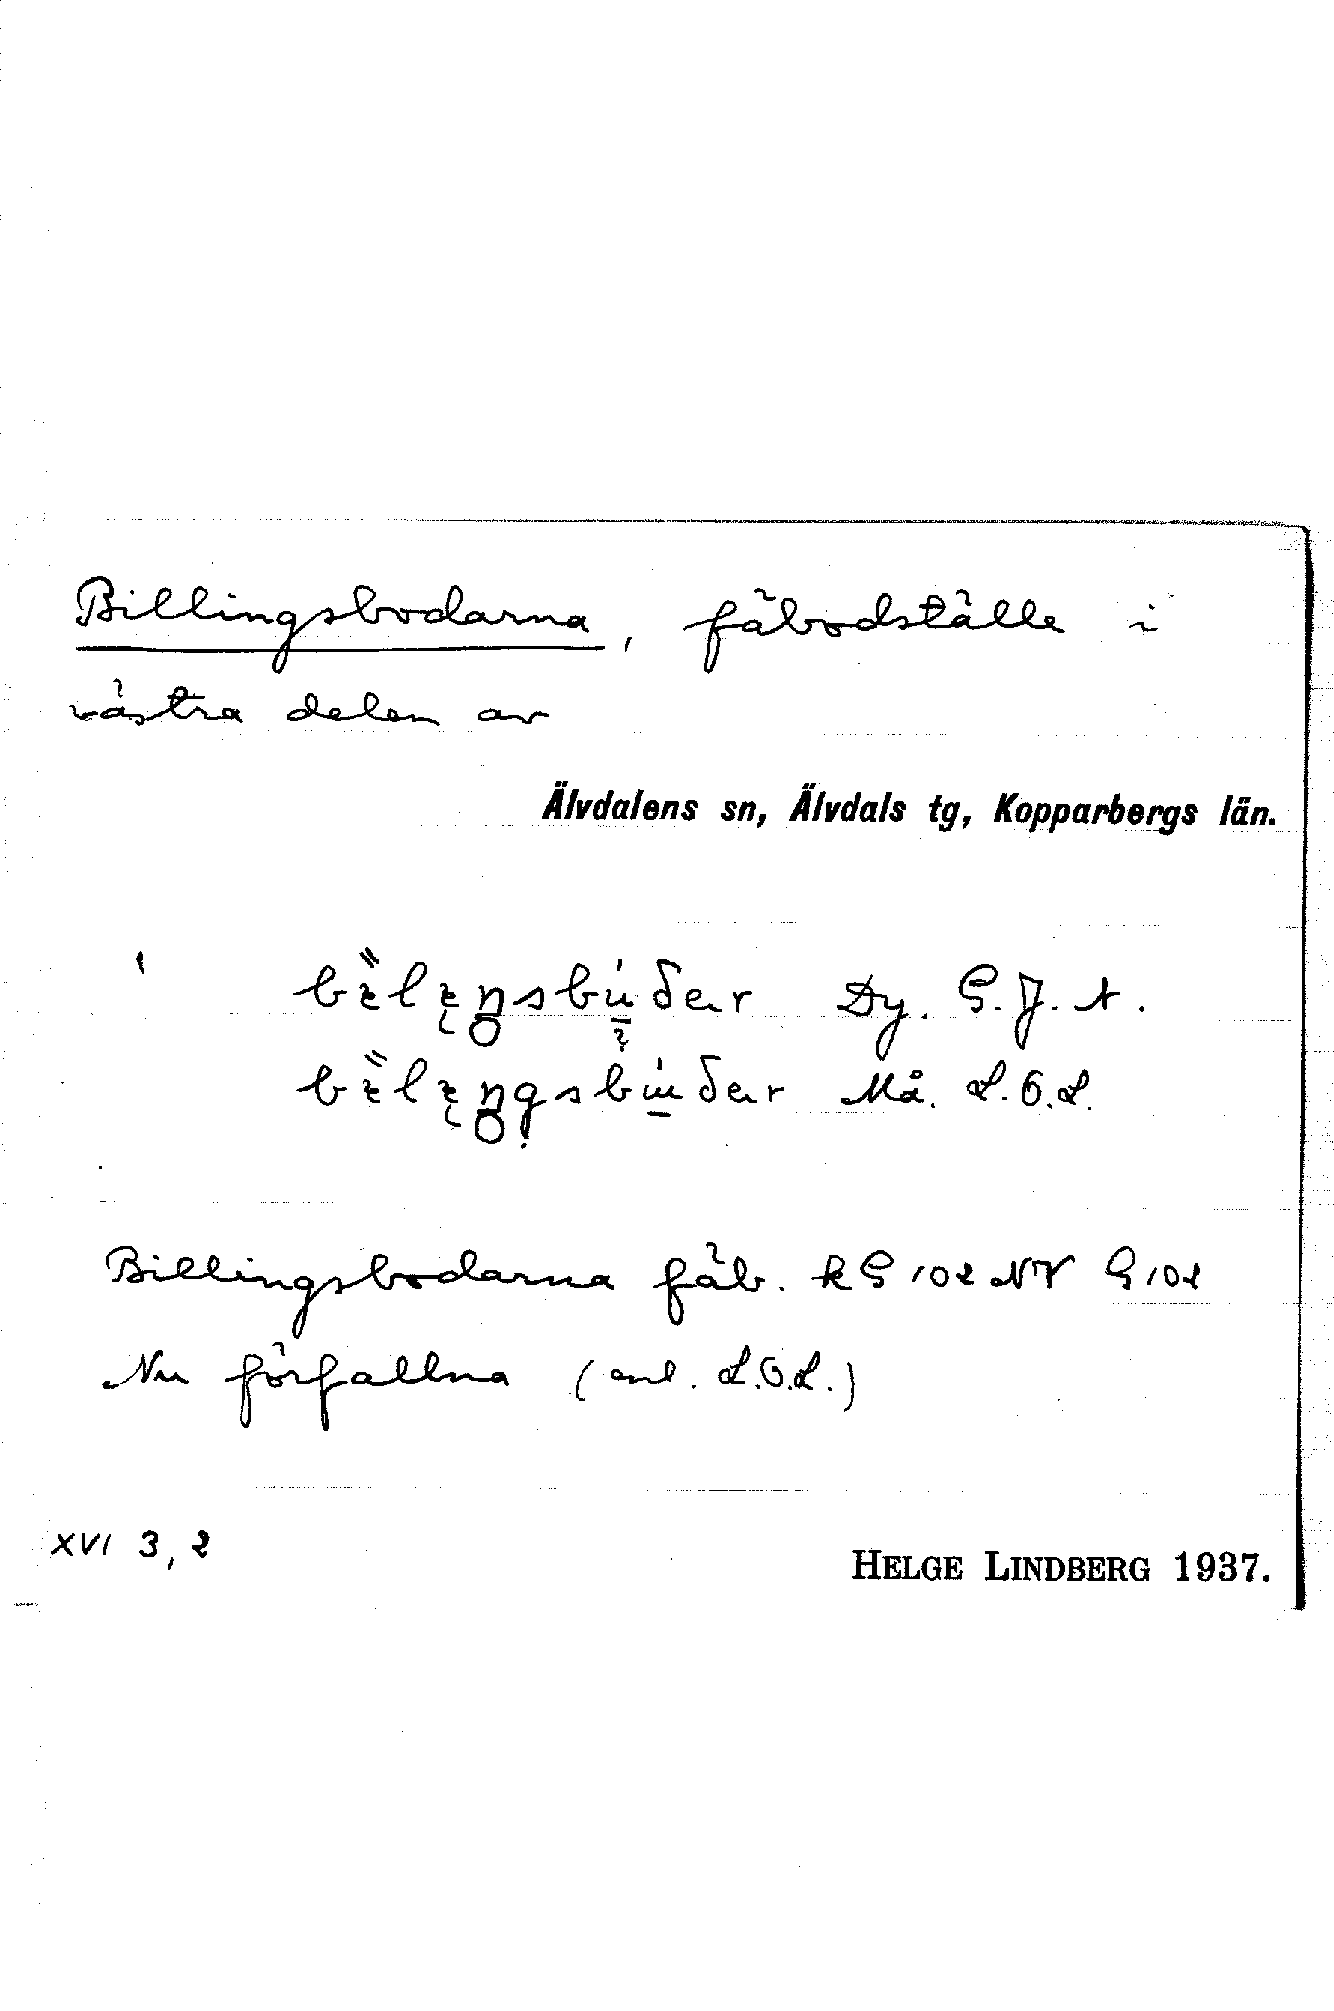 Billingsbodarna, fäbodställe i
västra delen av
Älvdalens sn, Älvdals tg, Kopparbergs län.
Dy. G. J. A.
Må. L. O. L.
Billingsbodarna fäb. kG 102 NV G 102
Nu förfallna (enl. L.O.L.)
XVI 3, 2
HELGE LINDBERG 1937.